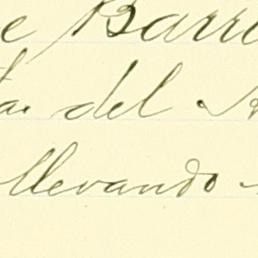 e Barr
a. del
llevando